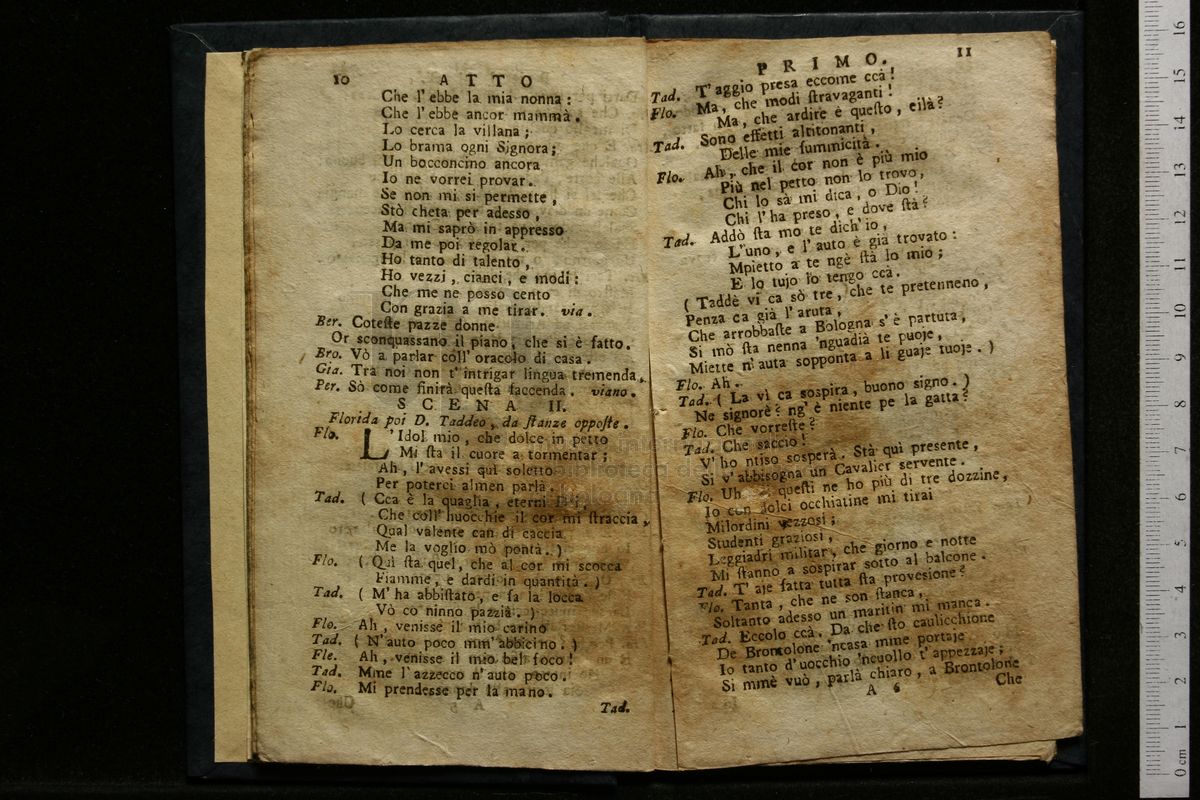 10 ATTO
Che l'ebbe la mia nonna:
Che l'ebbe ancor mammà.
Lo cerca la villana;
Lo brama ogni Signora;
Un bocconcino ancora
Io ne vorrei provar.
Se non mi si permette,
Stò cheta per adesso,
Ma mi saprò in appresso
Da me poi regolar.
Ho tanto di talento,
Ho vezzi, cianci, e modi:
Che me ne posso cento
Con grazia a me tirar. via.
Ber. Coteste pazze donne
Or sconquassano il piano, che si è fatto.
Bro. Vò a parlar coll' oracolo di casa.
Gia. Trà noi non t'intrigar lingua tremenda,
Per. Sò come finirà questa faccenda. viano.
SCENA II.
Florida poi D. Taddeo, da stanze opposte.
Flo. L'Idol mio, che dolce in petto
Mi sta il cuore a tormentar;
Ah, l'avessi quì soletto
Per poterci almen parlà.
Tad. ( Cca è la quaglia, eterni
Che coll' huocchie il cor mi straccia,
Qual valente can di caccia
Me la voglio mò pontà. )
Flo. ( Quì sta quel, che al cor mi scocca
Fiamme, e dardi in quantità. )
Tad. ( M'ha abbistato, e fa la locca
Vò co ninno pazzià. )
Flo. Ah, venisse il mio carino
Tad. ( N'auto poco mm'abbicino. )
Fle. Ah, venisse il mio bel foco!
Tad. Mme l'azzecco n'auto poco.
Flo. Mi prendesse per la mano.
A 5
Tad.
PRIMO. 11
Tad. T'aggio presa eccome ccà!
Flo. Ma, che modi stravaganti!
Ma, che ardire è questo, eilà?
Tad. Sono effetti altitonanti,
Delle mie summicità.
Flo. Ah, che il cor non è più mio
Più nel petto non lo trovo,
Chi lo sà mi dica, o Dio!
Chi l'ha preso, e dove stà?
Tad. Addò sta mo te dich'io,
L'uno, e l'auto è già trovato:
Mpietto a te ngè stà lo mio;
E lo tujo io tengo ccà.
( Taddè vi ca sò tre, che te pretenneno,
Penza ca già l'aruta,
Che arrobbaste a Bologna s'è partuta,
Si mò sta nenna 'nguadià te puoje,
Miette n'auta sopponta a li guaje tuoje. )
Flo. Ah.
Tad. ( La vì ca sospira, buono signo. )
Ne signorè? ng'è niente pe la gatta?
Flo. Che vorreste?
Tad. Che saccio!
V'ho ntiso sosperà. Stà quì presente,
Si v'abbisogna un Cavalier servente.
Flo. Uh di questi ne ho più di tre dozzine,
Io con dolci occhiatine mi tirai
Milordini vezzosi;
Studenti graziosi,
Leggiadri militar, che giorno e notte
Mi stanno a sospirar sotto al balcone.
Tad. T'aje fatta tutta sta provesione?
Flo. Tanta, che ne son stanca,
Soltanto adesso un maritin mi manca.
Tad. Eccolo ccà. Da che sto caulicchione
De Brontolone 'ncasa mme portaje
Io tanto d'uocchio 'ncuollo t'appezzaje;
Si mmè vuò, parlà chiaro, a Brontolone
A 6
Che